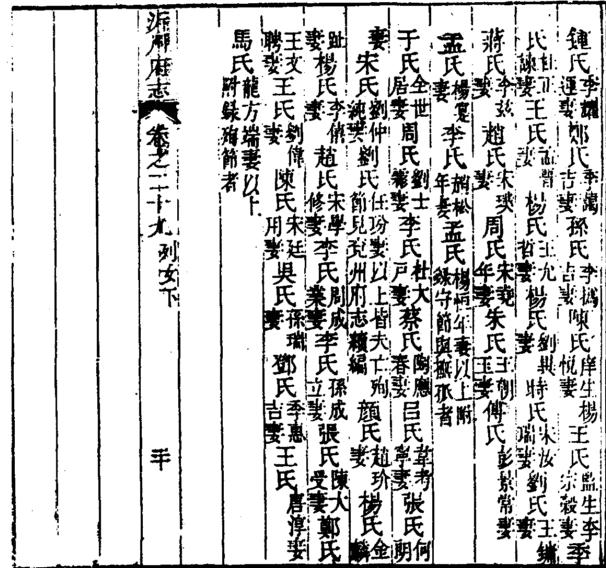 鍾氏李耀運妻鄭氏李萬吉妻孫氏李撝吉妻陳氏庠生楊悅妻王氏監生李宗穀妻李
氏杜可諫妻王氏孟譜妻楊氏王允哲妻楊氏劉興妻時氏朱汝瑞妻劉氏王鏽妻
蔣氏李茲妻趙氏宋璞妻周氏宋堯年妻朱氏王朝玉妻傅氏彭景常妻
孟氏楊寔妻李氏楊松年妻孟氏楊恒年妻以上附錄守節與撫孤者
于氏全世居妻周氏劉士妻李氏杜大戶妻蔡氏陶應春妻呂氏韋考寧妻張氏何朗
妻宋氏劉仲純妻劉氏任玢妻以上皆夫亡殉節見兗州府志續編顏氏趙玠妻楊氏金麟
趾妻楊氏李妻趙氏宋學修妻李氏周成業妻李氏孫成立妻張氏陳大受妻鄭氏
王文聘妻王氏劉偉妻陳氏宋廷用妻吳氏孫瑞妻鄧氏季惠吉妻王氏唐淳妻
馬氏龍方端妻以上附錄殉節者
沂州府志 卷之二十九 列女下 三十